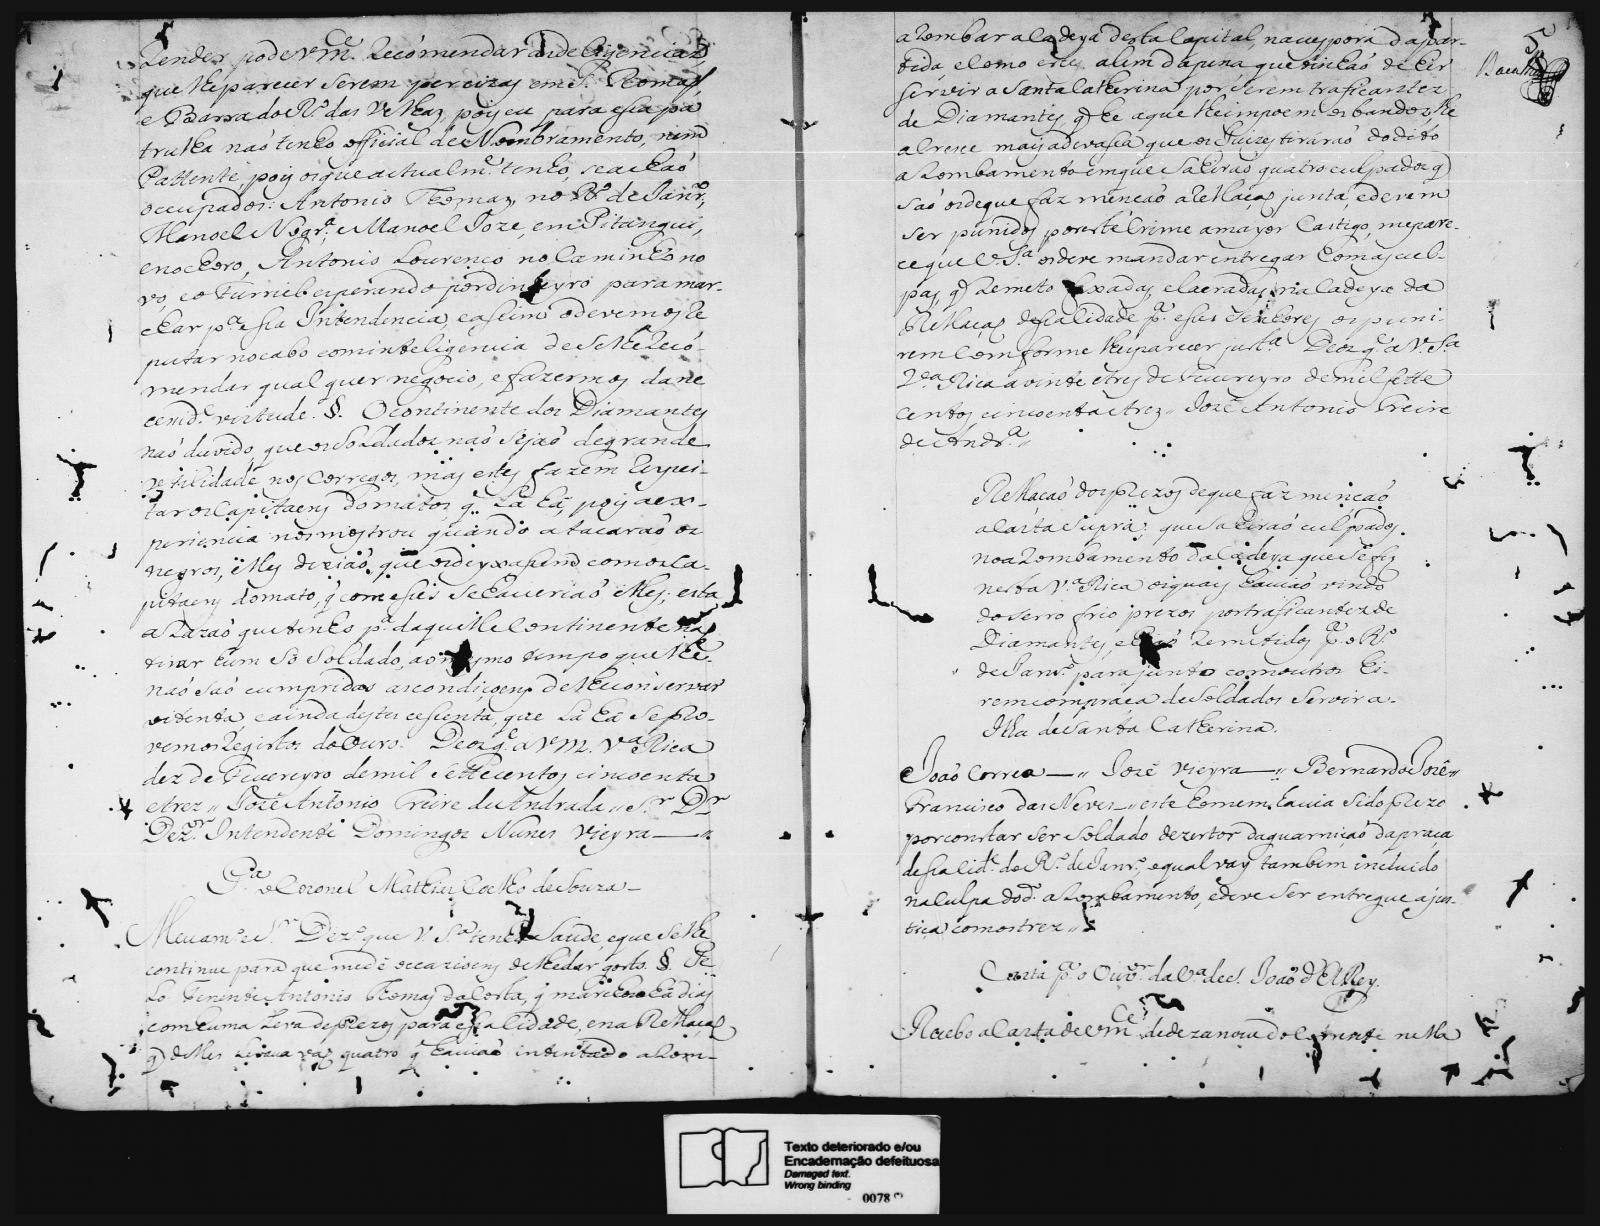 render, pode Vm.ce recomendar as deligencias,
que lhe parecer serem percizas em S. Thomas
e Barra do R.º das Velhas, pois eu para essa pa
trulha naõ tenho official de Nombramento, nem
Pattente, pois os que actualm.te tenho, se achaõ
occupados: Antonio Thomas, no R.º de Janr.º,
Manoel Nogr.ª, e Manoel Joze, em Pitangui,
e no choro, Antonio Lourenço no Caminho no
vo, e o Furriel esperando por dinheyro para mar-
char p.ª essa Intendencia, e assim o devemos re
putar no cabo com inteligencia de se lhe reco-
mendar qual quer negocio, e fazermos da ne
cecid.e virtude. §. O continente dos Diamantes
naõ duvido, que os soldados naõ sejaõ de grande
utilidade nos corregos, mas estes fazem respei-
tar os Capitaens do mato, q. lá há, pois a ex-
periencia nos mostrou quando atacaraõ os
negros, elles diziaõ, que os deyxassem com os Ca-
pitaens do mato, q. com esses se haveriaõ elles; esta
a razaõ que tenho p.ª daquelle continente naõ
tirar hum só soldado, ao mesmo tempo que lhe
naõ saõ cumpridas as condiçoens de lhe conservar
oitenta, e ainda destes cessenta, que lá há se pro-
vem os Registos do Ouro. Deos g.e a Vm. V.ª Rica
dez de Fevereyro de mil settecentos sincoenta
e trez // Jozé Antonio Freire de Andrada // S.r D.r
Dez.or Intendente Domingos Nunes Vieyra — //
P.ª o Coronel Mathias Coelho de Souza —
Meu am.º e S.r Dez.º que V. S.ª tenha saude, e que se lhe
continue para que me dê occazioens de lhe dar gosto. §. Pe
lo Tenente Antonio Thomas da Costa, q. marchou há dias
com huma Leva de prezos para essa Cidade, e na Rellaçaõ
q. delles levava vaõ quatro q. haviaõ intentado arrom-
arrombar a Cadeya desta Capital, na vespora da par-
tida, e como estes alem da pena que tinhaõ de hir
servir a Santa Catherina por serem traficantes
de Diamantes, q. he a que lhe impoem os bandos, lhe
acresce mais a devassa que os Juizes tiraraõ do dito
arrombamento em que sahiraõ quatro culpados q.
saõ os de que faz mençaõ a Rellaçaõ junta, e devem
ser punidos por este crime a mayor Castigo, me pare-
ce que V. S.ª os deve mandar entregar com as cul-
pas, q. remeto fexadas, e lacradas, na Cadeya da
Rellaçaõ dessa Cidade p.ª esses Senhores os puni-
rem comforme lhes parecer just.ª Deos g.e a V. S.ª
V.ª Rica a vinte e tres de Fevereyro de mil sette
centos cincoenta e trez // Jozé Antonio Freire
de Andr.ª //
Rellaçaõ dos prezos de que faz mençaõ
a Carta supra, que sahiraõ culpados
no arrombamento da Cadeya que se fes
nesta V.ª Rica os quais haviaõ vindo
do Serro frio prezos por traficantes de
Diamantes, e eraõ remetidos p.ª o R.º
de Janr.º para junto com outros hi-
rem com praça de soldados servir a
Ilha de Santa Catherina.
Joaõ Correa — // Jozé Vieyra — // Bernardo Jozé //
Francisco das Neves // este homem havia sido prezo
por constar ser soldado dezertor da guarniçaõ da praça
dessa Cid.e do R.º de Janr.º, e qual vay tambem incluido
na culpa do d.º arrombamento, e deve ser entregue a jus-
tiça com os trez //
Carta p.ª o Ouv.or da V.ª de S. Joaõ d'ElRey.
Recebo a Carta de Vm.ce de dezanove do corrente nella
Texto deteriorado e/ou
Encadernação defeituosa
Damaged text.
Wrong binding
0078